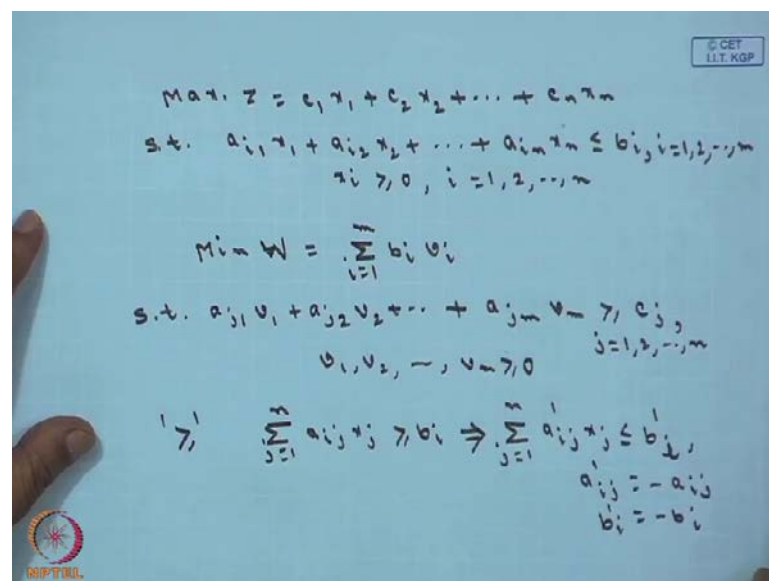 © CET
I.I.T. KGP
Max. Z = c₁x₁ + c₂x₂ + ... + cₙxₙ
s.t. aᵢ₁x₁ + aᵢ₂x₂ + ... + aᵢₙxₙ ≤ bᵢ, i=1,2,..,m
xᵢ ≥ 0, i = 1,2,..,n
Min W = Σᵢ₌₁ᵐ bᵢ vᵢ
s.t. aⱼ₁v₁ + aⱼ₂v₂ + ... + aⱼₘvₘ ≥ cⱼ,
j=1,2,..,n
v₁, v₂, –, vₘ ≥ 0
'≥' Σⱼ₌₁ⁿ aᵢⱼxⱼ ≥ bᵢ ⇒ Σⱼ₌₁ⁿ a'ᵢⱼxⱼ ≤ b'ᵢ,
a'ᵢⱼ = -aᵢⱼ
b'ᵢ = -bᵢ
NPTEL